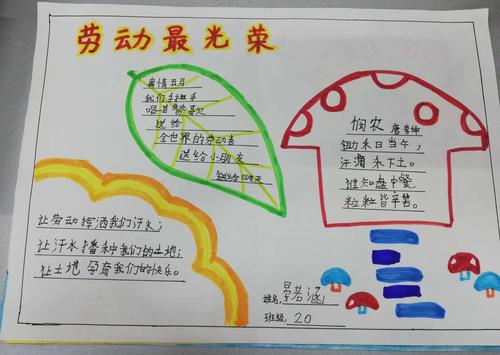 劳动最光荣
真情五月
我们手挽手
唱首赞歌
送给
全世界的劳动者
送给小朋友
悯农 唐李绅
锄禾日当午，
汗滴禾下土。
谁知盘中餐
粒粒皆辛苦。
让劳动挥洒我们汗水；
让汗水播种我们的土地；
让土地孕育我们的快乐。
姓名：晏若涵
班级：20